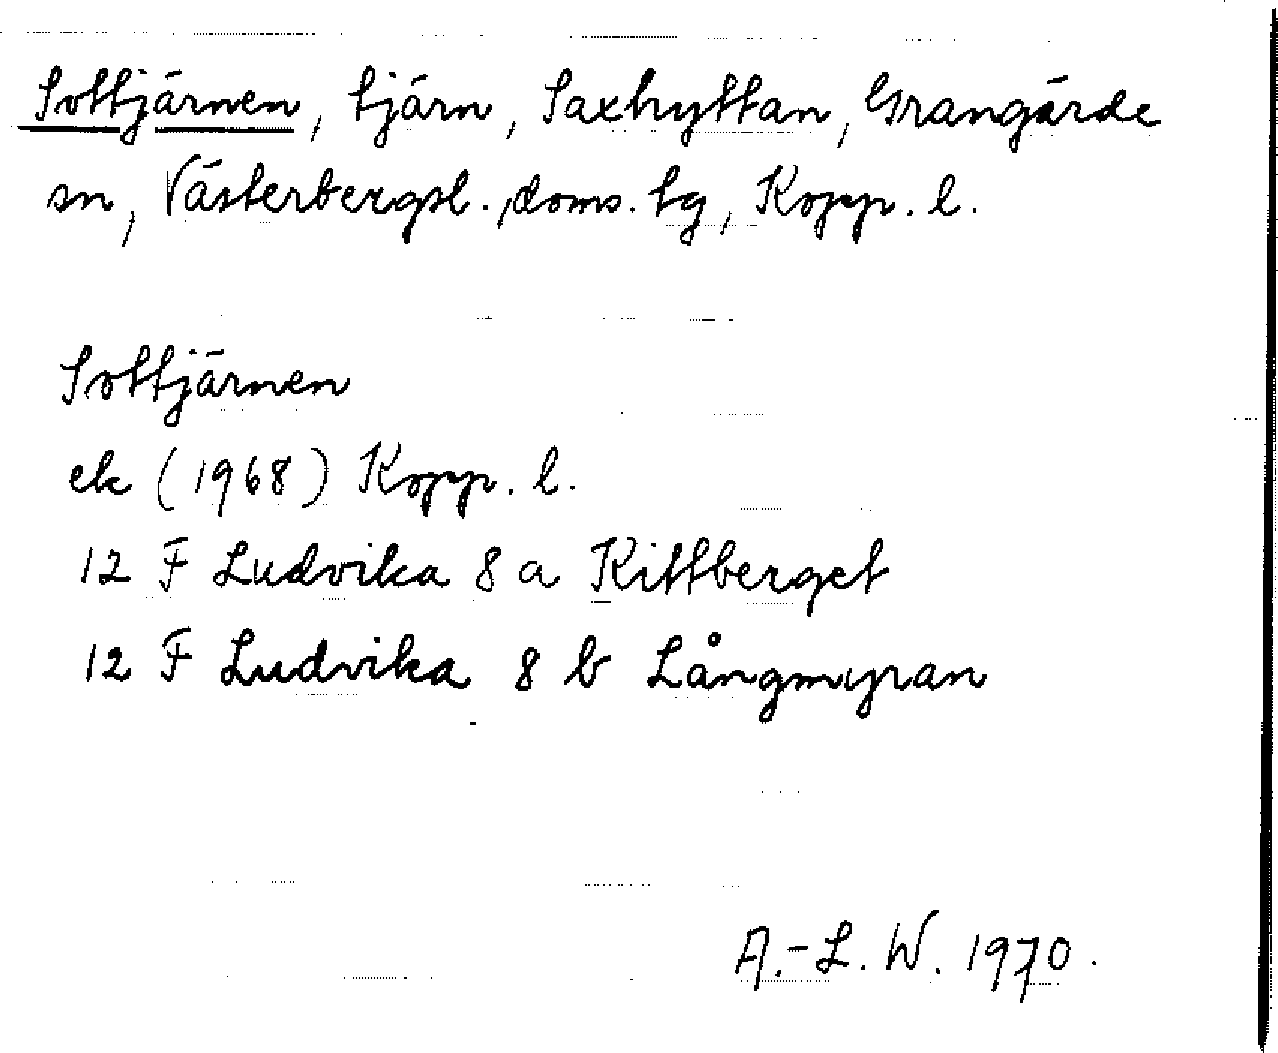 Sottjärnen, tjärn, Saxhyttan, Grangärde
sn, Västerbergsl., doms. tg, Kopp. l.
Sottjärnen
ek (1968) Kopp. l.
12 F Ludvika 8 a Kittberget
12 F Ludvika 8 b Långmyran
A.-L. W. 1970.